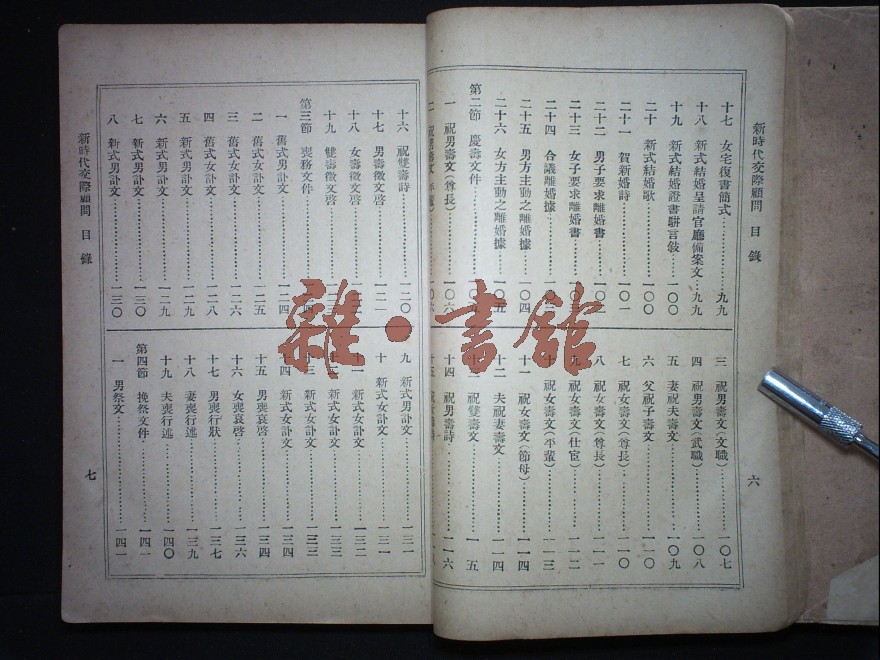 新時代交際顧問 目錄
十七 女宅復書簡式 九九
十八 新式結婚呈請官廳備案文 九九
十九 新式結婚證書駢言敍 一〇〇
二十 新式結婚歌 一〇〇
二十一 賀新婚詩 一〇一
二十二 男子要求離婚書
二十三 女子要求離婚書
二十四 合議離婚據
二十五 男方主動之離婚據 一〇四
二十六 女方主動之離婚據
第二節 慶壽文件
一 祝男壽文(尊長)
二 祝男壽文(平輩)
三 祝男壽文(文職) 一〇七
四 祝男壽文(武職) 一〇八
五 妻祝夫壽文 一〇九
六 父祝子壽文 一一〇
七 祝女壽文(尊長) 一一〇
八 祝女壽文(尊長) 一一一
九 祝女壽文(仕宦) 一一二
十 祝女壽文(平輩) 一一三
十一 祝女壽文(節母) 一一四
十二 夫祝妻壽文 一一四
祝雙壽文
十四 祝男壽詩 一一六
六
十六 祝雙壽詩 一二〇
十七 男壽徵文啓 一二一
十八 女壽徵文啓
十九 雙壽徵文啓
第三節 喪務文件
一 舊式男訃文 一二四
二 舊式男訃文 一二五
三 舊式女訃文 一二六
四 舊式女訃文 一二八
五 新式男訃文 一二九
六 新式男訃文 一二九
七 新式男訃文 一三〇
八 新式男訃文 一三〇
九 新式男訃文 一三一
十 新式女訃文 一三一
十一 新式女訃文 一三二
十二 新式女訃文 一三三
十三 新式女訃文 一三三
十四 新式女訃文 一三四
十五 男喪哀啓 一三四
十六 女喪哀啓 一三六
十七 男喪行狀 一三七
十八 妻喪行述 一三九
十九 夫喪行述 一四〇
第四節 挽祭文件 一四一
一 男祭文 一四一
新時代交際顧問 目錄
七
雜·書館